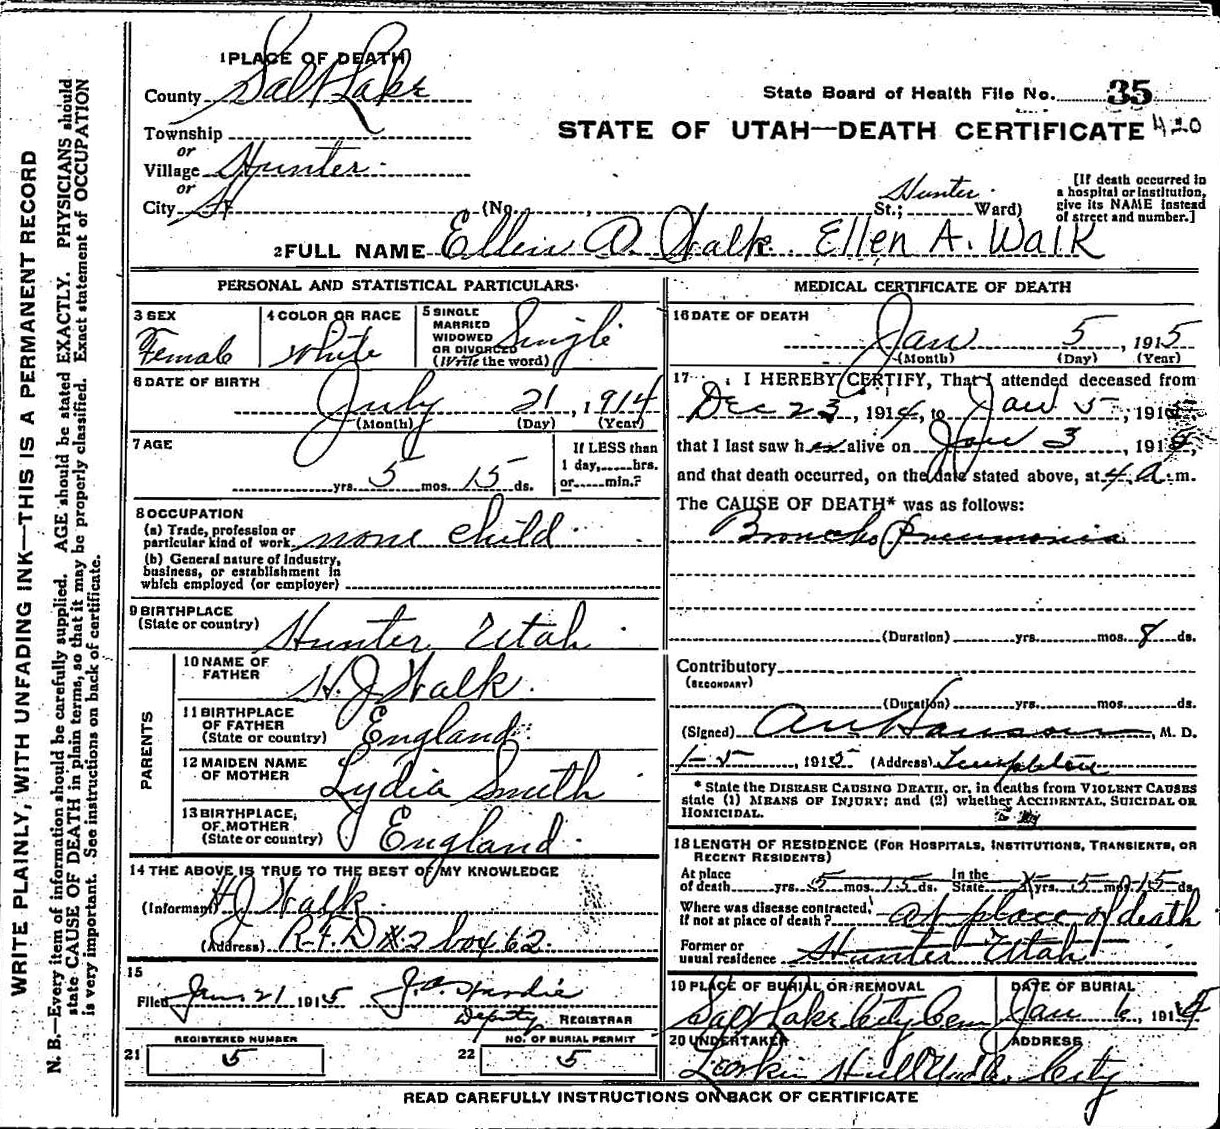 1 PLACE OF DEATH
County Salt Lake
State Board of Health File No. 35
Township
STATE OF UTAH—DEATH CERTIFICATE 420
or
Village Hunter
or
City (No. , Hunter St.; Ward)
[If death occurred in a hospital or institution, give its NAME instead of street and number.]
2 FULL NAME Ellen A. Walk. Ellen A. Walk
PERSONAL AND STATISTICAL PARTICULARS
3 SEX Female
4 COLOR OR RACE White
5 SINGLE MARRIED WIDOWED OR DIVORCED (Write the word) Single
6 DATE OF BIRTH
July 21, 1914
(Month) (Day) (Year)
7 AGE
yrs. 5 mos. 15 ds.
If LESS than 1 day, hrs. or min.?
8 OCCUPATION
(a) Trade, profession or particular kind of work none child
(b) General nature of industry, business, or establishment in which employed (or employer)
9 BIRTHPLACE (State or country) Hunter Utah
PARENTS
10 NAME OF FATHER H. J. Walk.
11 BIRTHPLACE OF FATHER (State or country) England
12 MAIDEN NAME OF MOTHER Lydia Smith
13 BIRTHPLACE OF MOTHER (State or country) England
14 THE ABOVE IS TRUE TO THE BEST OF MY KNOWLEDGE
(Informant) H J Walk
(Address) R.F.D #2 box 62.
15
Filed Jan. 21 1915
Deputy REGISTRAR
21 REGISTERED NUMBER 5
22 NO. OF BURIAL PERMIT 5
MEDICAL CERTIFICATE OF DEATH
16 DATE OF DEATH
Jan 5, 1915
(Month) (Day) (Year)
17 I HEREBY CERTIFY, That I attended deceased from
Dec 23, 1914, to Jan 5, 191
that I last saw her alive on Jan 3, 191
and that death occurred, on the date stated above, at 4 A. m.
The CAUSE OF DEATH* was as follows:
Broncho Pneumonia
(Duration) yrs. mos. 8 ds.
Contributory
(SECONDARY)
(Duration) yrs. mos. ds.
(Signed) M. D.
1-5, 1915 (Address) Templeton
* State the DISEASE CAUSING DEATH, or, in deaths from VIOLENT CAUSES state (1) MEANS OF INJURY; and (2) whether ACCIDENTAL, SUICIDAL OR HOMICIDAL.
18 LENGTH OF RESIDENCE (FOR HOSPITALS, INSTITUTIONS, TRANSIENTS, OR RECENT RESIDENTS)
At place of death yrs. 5 mos. 15 ds. In the State yrs. 5 mos 15 ds.
Where was disease contracted, if not at place of death? at place of death
Former or usual residence Hunter Utah
19 PLACE OF BURIAL OR REMOVAL Salt Lake City Cem
DATE OF BURIAL Jan 6, 191
20 UNDERTAKER Larkin Hull Und Co.
ADDRESS City
READ CAREFULLY INSTRUCTIONS ON BACK OF CERTIFICATE
WRITE PLAINLY, WITH UNFADING INK—THIS IS A PERMANENT RECORD
N. B.—Every item of information should be carefully supplied. AGE should be stated EXACTLY. PHYSICIANS should
state CAUSE OF DEATH in plain terms, so that it may be properly classified. Exact statement of OCCUPATION
is very important. See instructions on back of certificate.